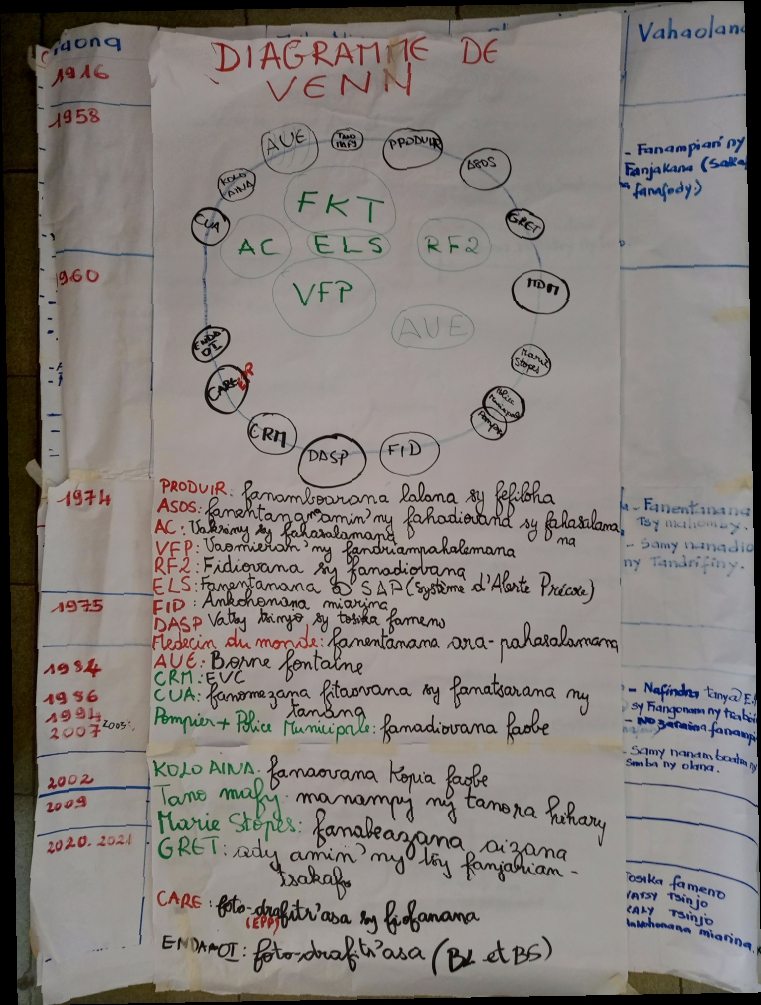 Vahaolana
1916
1958
1960
1974
1975
1984
1986
1994
2007 2005
2002
2009
2020. 2021
DIAGRAMME DE
VENN
AUE
TANO MAFY
PRODUIR
ASOS
KOLO AINA
FKT
CUA
GRET
AC
ELS
RF2
VFP
MDM
AUE
ENDA OI
Marie Stopes
CARE EPP
Police Municipale
Pompier
CRM
DASP
FID
PRODUIR: fanamboarana lalana sy fefiloha
ASOS: fanentanana amin'ny fahadiovana sy fahasalama
na
AC: Vakiriny sy fahasalamana
VFP: Vaomieran'ny fandriampahalemana
RF2: Fidiovana sy fanadiovana
ELS: Fanentanana SAP (Système d'Alerte Précoce)
FID: Ankohonana miarina
DASP Vatsy tsinjo sy tosika fameno
Medecin du monde: fanentanana ara-pahasalamana
AUE: Borne fontaine
CRM: EVC
CUA: fanomezana fitaovana sy fanatsarana ny
tanana
Pompier + Police Municipale: fanadiovana faobe
KOLO AINA: fanaovana Kopia faobe
Tano mafy: manampy ny tanora hihary
Marie Stopes: fanabeazana aizana
GRET: ady amin'ny tsy fanjarian-
tsakafo
CARE: foto-drafitr'asa sy fiofanana
(EPP)
ENDA OI: foto-drafitr'asa (BL et BS)
- Fanampian'ny
Fanjakana
fanafody.)
- Fanentanana
Tsy mahomby.
- Samy nanadio
ny Tandrifiny.
- Nafindra tanya
sy Fiangonam ny traboina
- No zaraina fanampi
- Samy nanamboatra ny
simba ny olona.
Tosika fameno
VATSY TSINJO
KALY TSINJO
Ankohonana miarina.